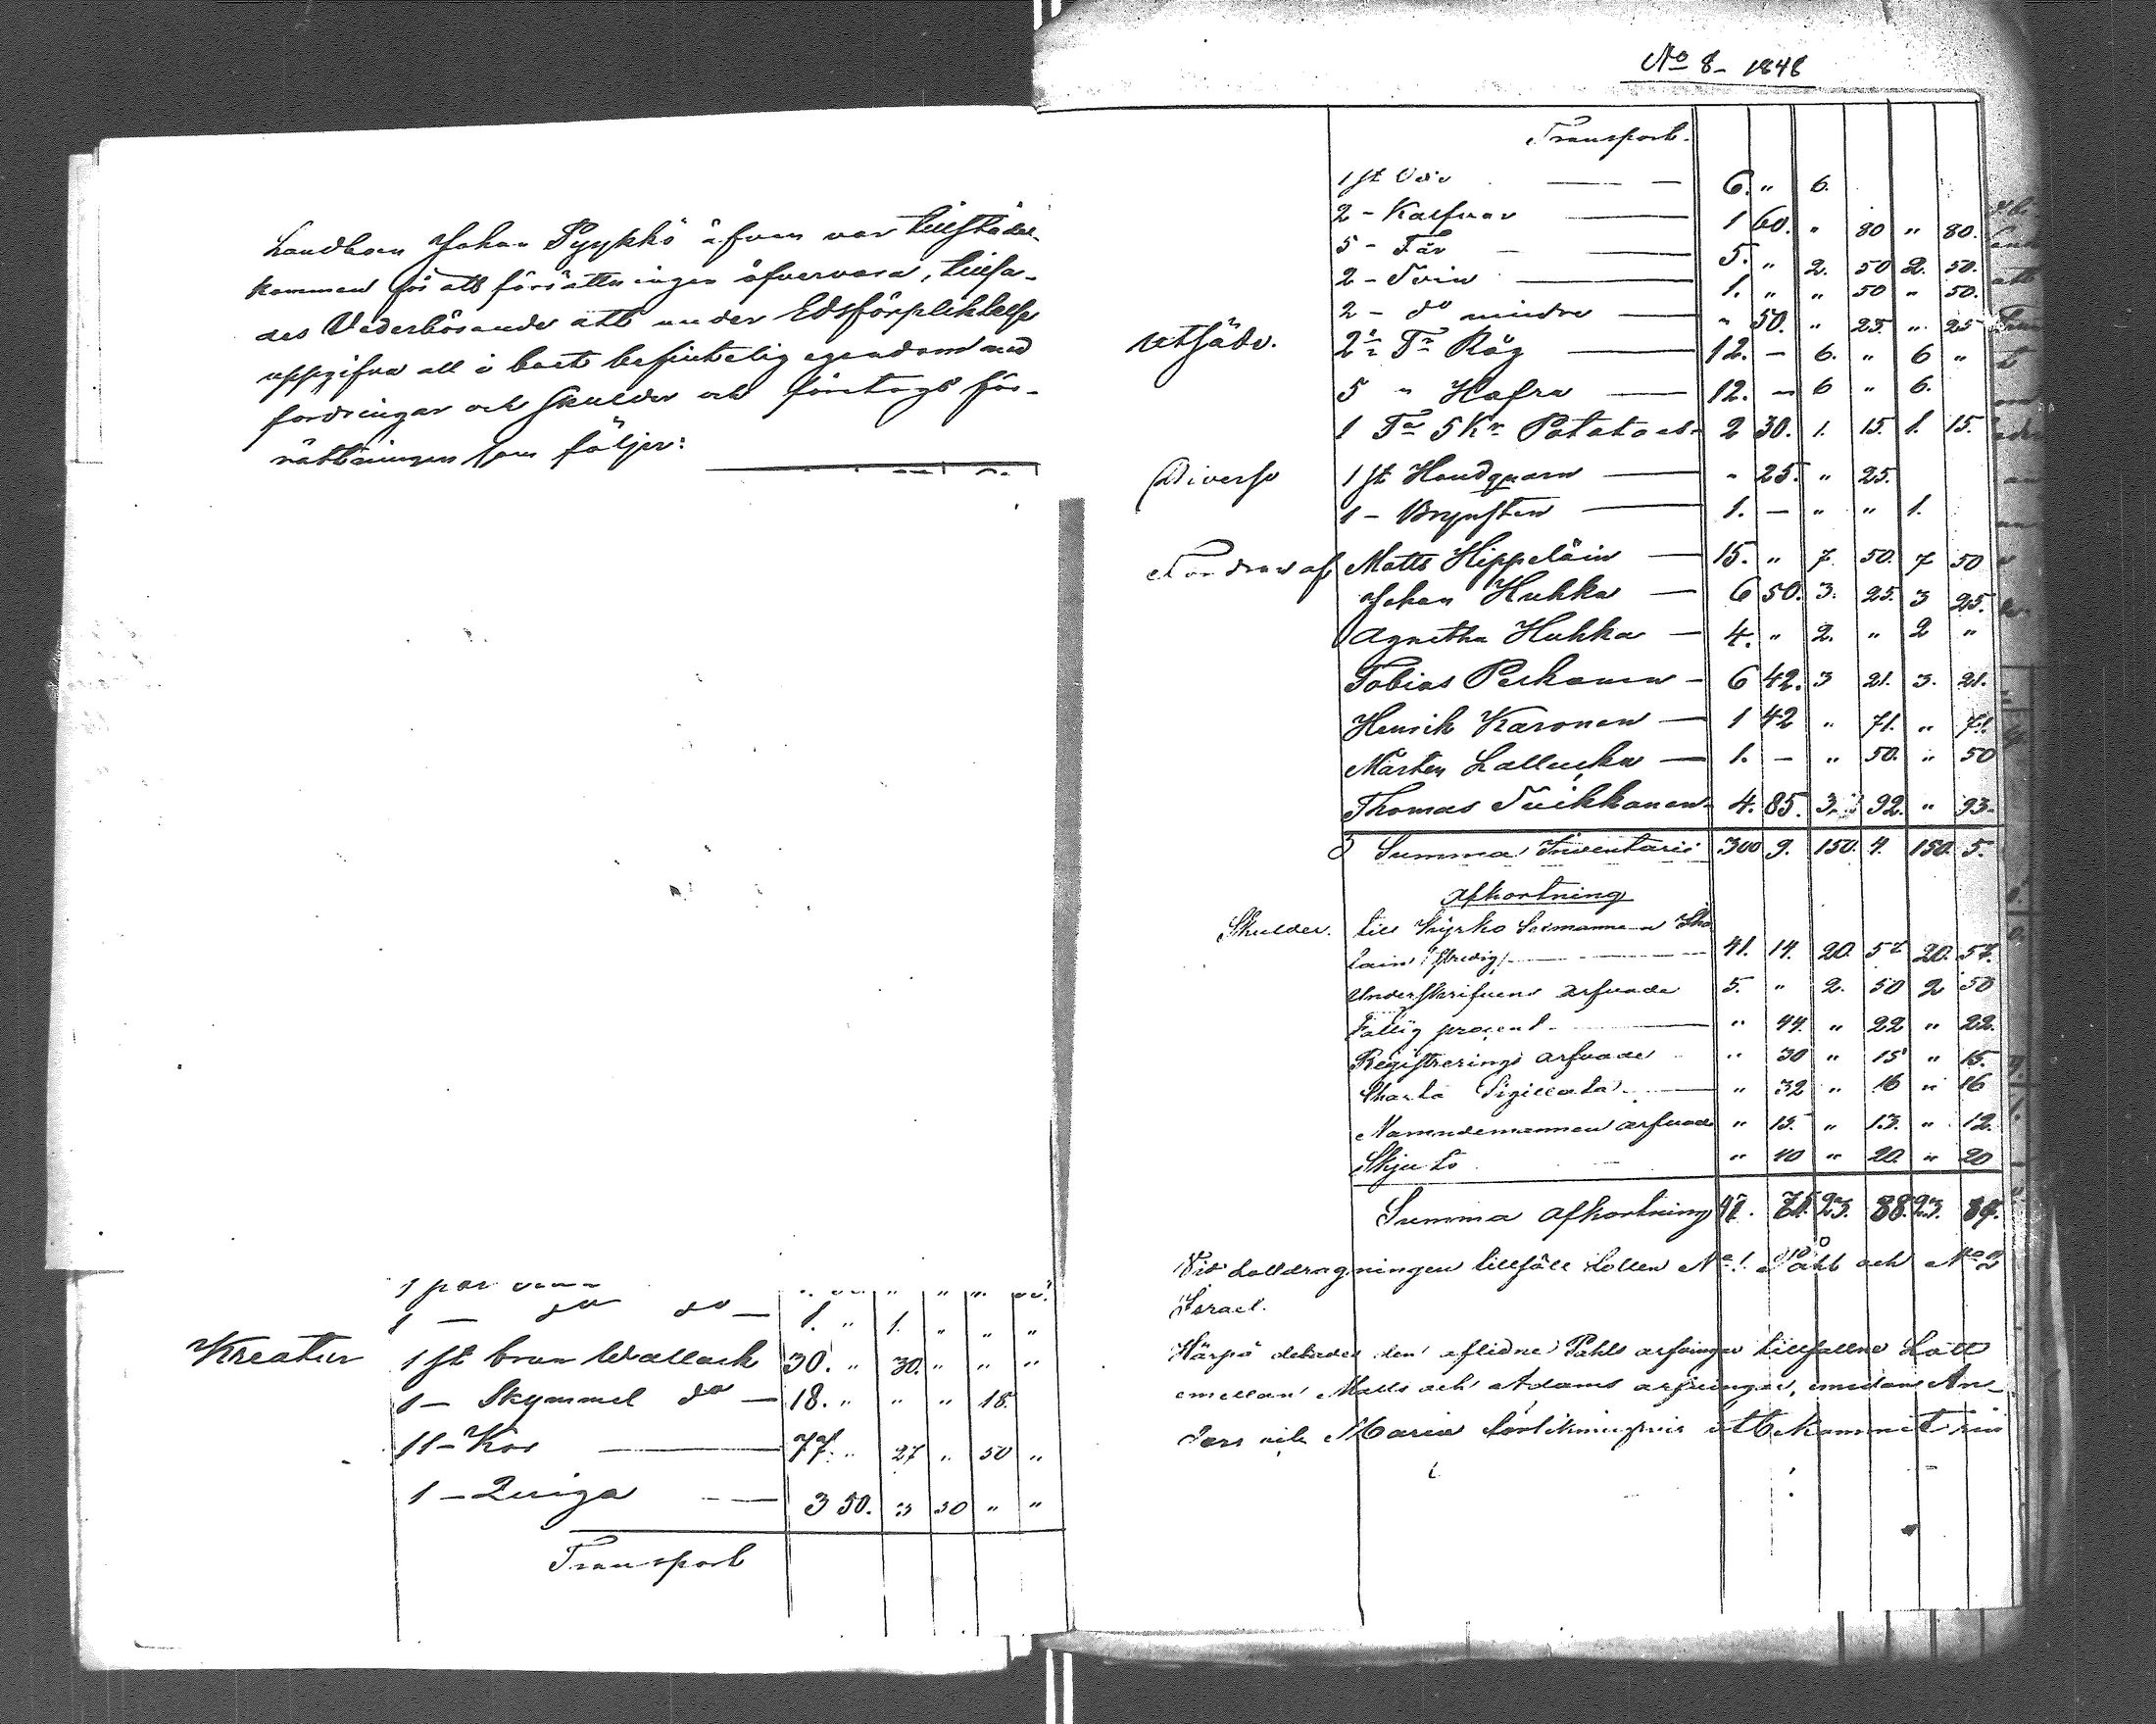 Landboen Johan Pyykkö äfven var tillstädes
kommen för att förrättningen öfvervara, tillsa-
des Vederbörande att under Edsförpliktelse
uppgifva all i boet befintelig egendom med
fordringar och skulder och företogs för-
rättningen som följer:
1 par
1 — do do — 1. " 1. " " "
Kreatur 1 st brun Wallack 30. " 30. " " "
1 — Skymmel do — 18. " " " 18.
11 — Kor — 77. " 27 " 50 "
1 — Quiga — 3 50. 3 50 " "
Transport
No 8 - 1848
Transport.
1 st — 6. " 6.
2 - Kalfvar — 1 60. " 80 " 80.
5 - Får — 5. " 2. 50 2. 50.
2 - Svin — 1. " " 50 " 50.
2 - do mindre — " 50. " 25. " 25
Utsäde. 2 1/2 Tr Råg — 12. — 6. " 6 "
5 " Hafra — 12. — 6 " 6.
1 Ta 5 Kr Potatoes - 2 30. 1. 15. 1. 15.
Diverse 1 st Handqvarn — " 25. " 25.
1 - Brynsten — 1. — " " 1.
Fordran af Matts Hippeläin — 15. " 7. 50. 7 50
Johan Hukka — 6 50. 3. 25. 3 25.
Agnetha Hukka — 4. " 2. " 2 "
Tobias Peckanen - 6 42. 3 21. 3. 21.
Henrik Karonen — 1 42 " 71. " 71.
Mårten Lallucka — 1. — " 50. " 50
Thomas Tuikkanen - 4. 85. 3. 92. " 93.
Summa Inventarii 300 9. 150. 4. 150. 5.
Afkortning
Skulder. till Kyrko
41. 14. 20. 57 20. 57.
Underskrifvens arfvode 5. " 2. 50 2 50
Fattig procent — " 44. " 22 " 22.
Registrerings arfvode " 30 " 15 " 15.
Charta Sigillata — " 32 " 16 " 16
Nämndemannen arfvode " 25. " 13. " 12.
Skjuts " 40 " 20. " 20
Summa afkortning 47. 23. 88. 23.
Vid lottdragningen tillföll Lotten No 1. Påhl och No 2
Israel.
Härpå delades den aflidne Påhls arfvingar tillfallne Lott
emellan Matts och Adams arfvingar, emedan An-
ders och Maria utbekommit sin